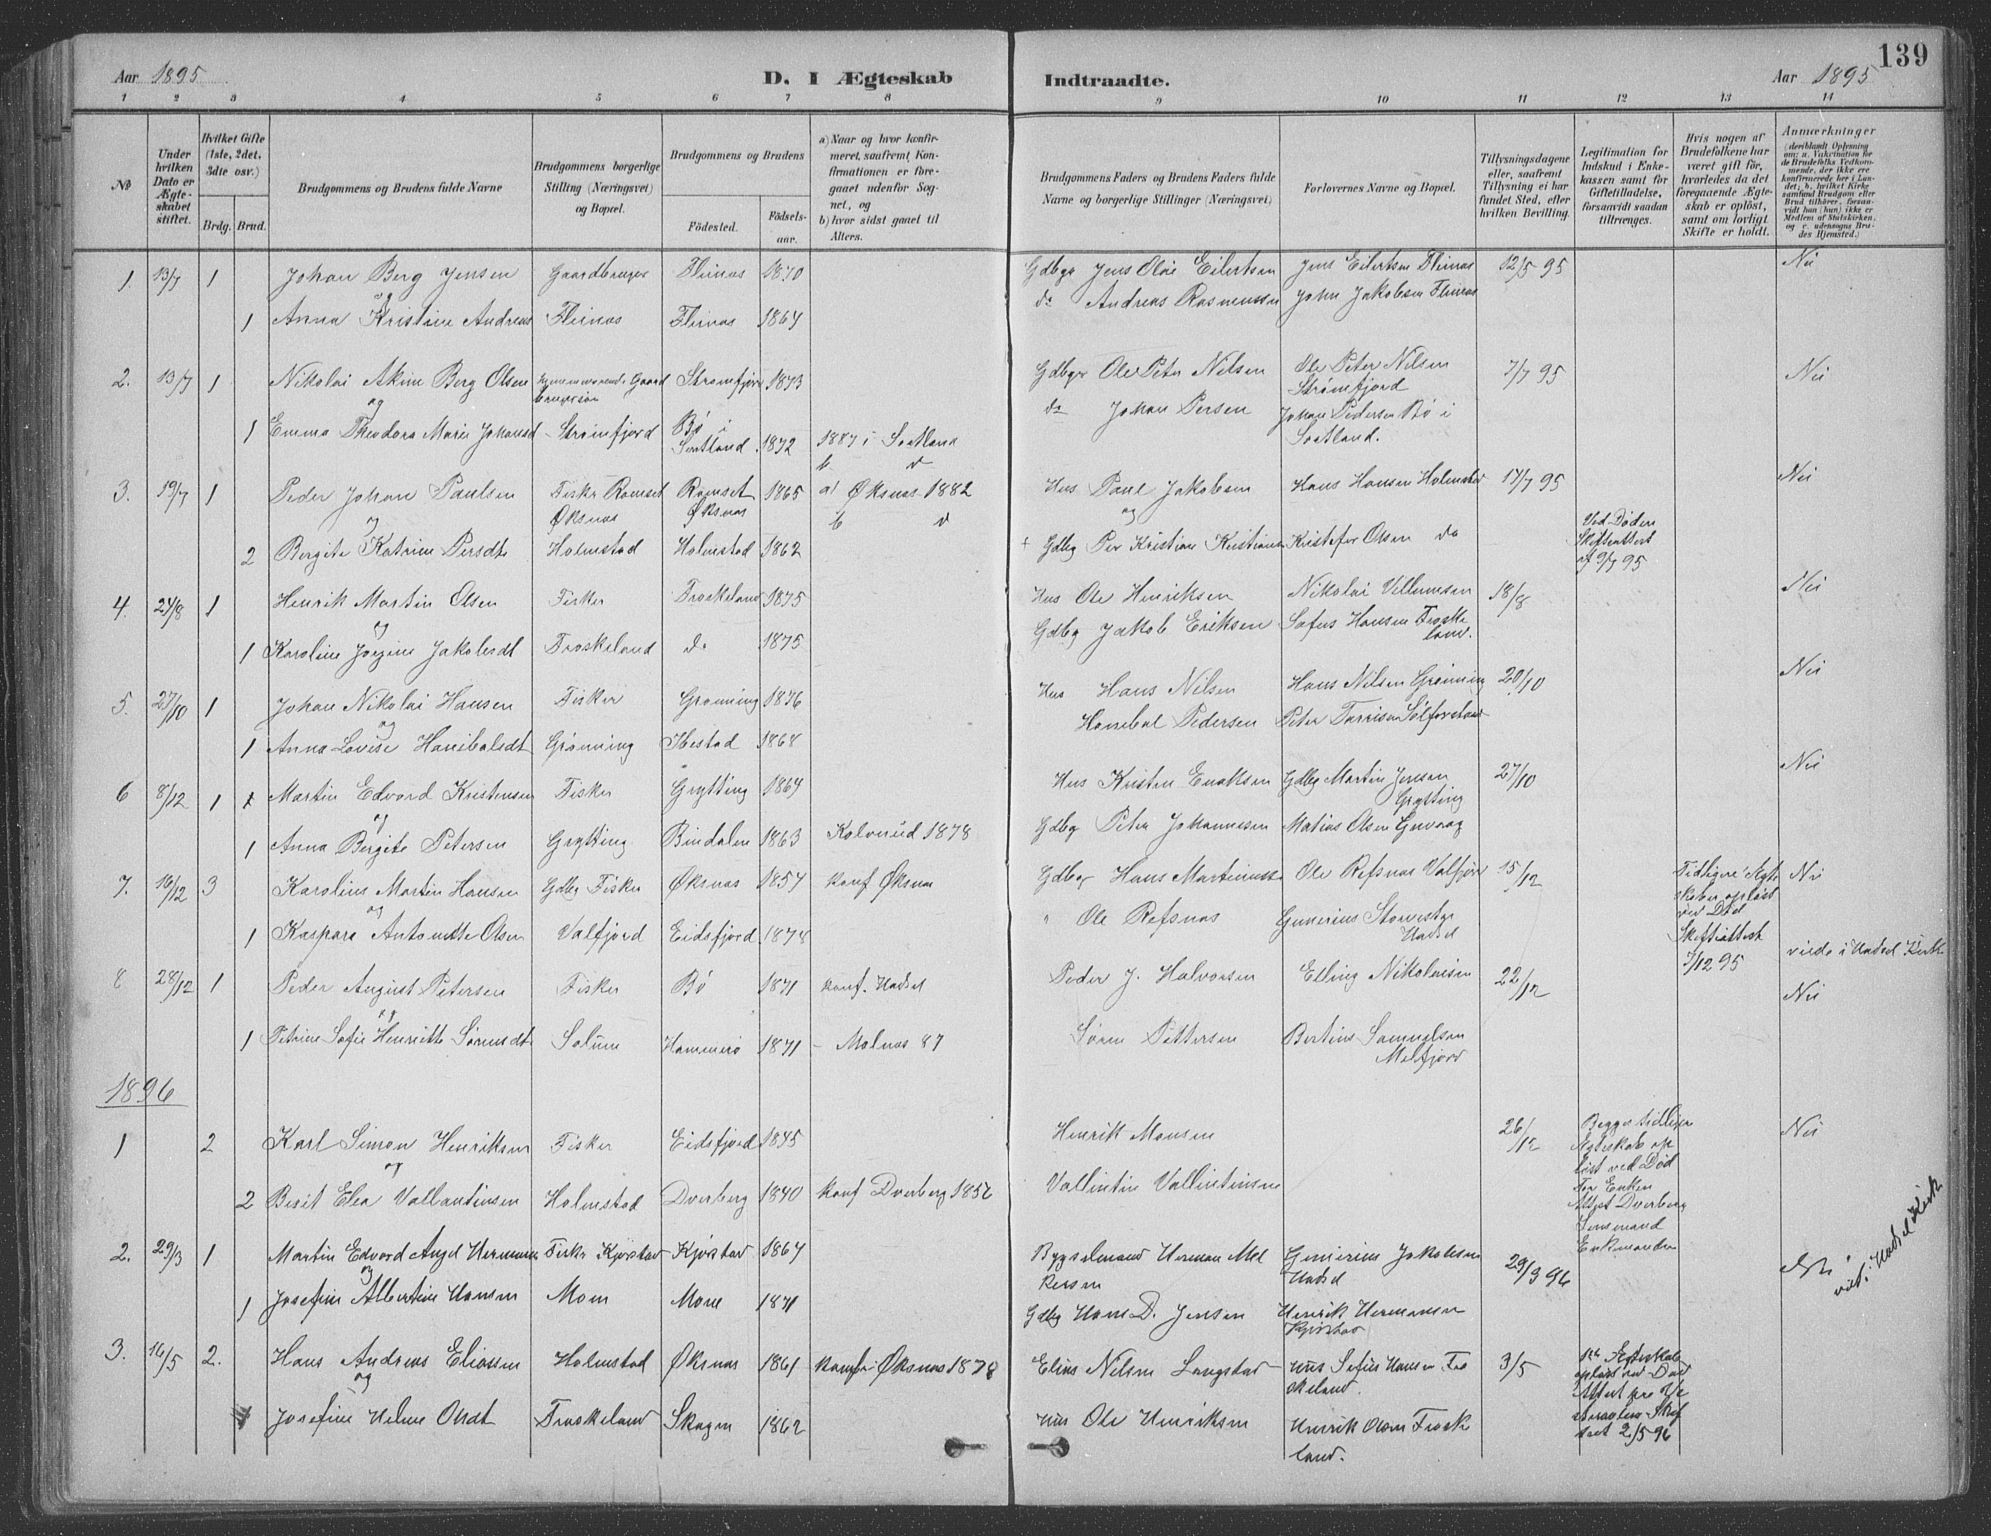 139
Aar 1895 D. I Ægteskab Indtraadte. Aar 1895
1 2 3 4 5 6 7 8 9 10 11 12 13 14
№
Under hvilken Dato er Ægteskabet stiftet.
Hvilket Gifte (1ste, 2det, 3die osv.)
Brdg. Brud.
Brudgommens og Brudens fulde Navne
Brudgommens borgerlige Stilling (Næringsvei) og Bopæl.
Brudgommens og Brudens
Fødested.
Fødselsaar.
a) Naar og hvor konfirmeret, saafremt Konfirmationen er foregaaet udenfor Sognet, og
b) hvor sidst gaaet til Alters.
Brudgommens Faders og Brudens Faders fulde Navne og borgerlige Stillinger (Næringsvei)
Forlovernes Navne og Bopæl.
Tillysningsdagene eller, saafremt Tillysning ei har fundet Sted, efter hvilken Bevilling.
Legitimation for Indskud i Enkekassen samt for Giftetilladelse, forsaavidt saadan tiltrænges.
Hvis nogen af Brudefolkene har været gift før, hvorledes da det foregaaende Ægteskab er opløst, samt om lovligt Skifte er holdt.
Anmærkninger (deriblandt Oplysning om: a. Vakcination for de Brudefolks Vedkommende, der ikke ere konfirmerede her i Landet; b. hvilket Kirkesamfund Brudgom eller Brud tilhører, forsaavidt han (hun) ikke er Medlem af Statskirken, og c. udensogns Brudes Hjemsted.)
1 13/7 1 Johan Berg Jensen Gaardbruger Flinæs 1870 Gdbgr Jens Olai Eilertsen Jens Eilertsen Flinæs 12/5 95 Nei
og
1 Anna Kristine Andreas Flinæs Flinæs 1864 do Andreas Rasmussen John Jakobsen Flinæs
2. 13/7 1 Nikolai Akim Berg Olsen Strømfjord 1873 Gdbgr Ole Peter Nilsen Ole Peter Nilsen Strømfjord 7/7 95 Nei
og
1 Emma Theodora Marie Johansd Strømfjord Bø i Sortland 1872 1887 i Sortland do Johan Persen Johan Pedersen Bø i Sortland.
3. 19/7 1 Peder Johan Paulsen Fisker Romset Øksnæs Romset Øksnæs 1865 a) Øksnæs 1882 Hus Paul Jakobsen Hans Hansen Holmstad 17/7 95 Nei
og
2 Bergite Katrine Persdt Holmstad Holmstad 1862 + Gdbg Per Kristian Kristians Kristofer Olsen do Ved Døden Skifteattest af 9/7 95
4. 24/8 1 Henrik Martin Olsen Fisker Froskeland 1875 Hus Ole Henriksen Nikolai Villumsen 18/8 Nei
og
1 Karoline Jorgine Jakobsdt Froskeland do 1875 Gdbg Jakob Eriksen Sofus Hansen Froskeland.
5. 27/10 1 Johan Nikolai Hansen Fisker Grønning 1876 Hus Hans Nilsen Hans Nilsen Grønning 20/10 Nei
og
1 Anna Lovise Hanibalsdt Grønning Ibestad 1868 Hanibal Pedersen Peter
6 8/12 1 Martin Edvard Kristensen Fisker Grytting 1864 Hus Kristen Gdbg Martin Jensen Grytting 27/10 Nei
og
1 Anna Bergite Petersen Grytting Bindalen 1863 Kolvereid 1878 Gdbg Peter Johannesen Matias Olsen
7. 16/12 3 Karolius Martin Hansen Gdbr Fisker Øksnæs 1857 Konf Øksnæs Gdbgr Hans Martinussen Ole Refsnæs Valfjord 15/12 Tidligere Ægteskaber opløst ved Død Skifteattest 7/12 95 Nei
og
1 Kaspara Antonette Olsen Valfjord Eidsfjord 1874 " Ole Refsnæs Hadsel viede i Hadsel Kirke
8 28/12 1 Peder August Petersen Fisker Bø 1871 Konf. Hadsel Peder J. Halvorsen Elling Nikolaisen 22/12 Nei
og
1 Petrine Sofie Henriette Sørensdt Hammerø 1871 – Malnæs 87 Søren Pettersen Bertius Samuelsen Melfjord
1896
1 2 Karl Simon Henriksen Fisker Eidsfjord 1845 Henrik Monsen 26/12 Begges tidligere Ægteskab opløst ved Død For Enken Attest Dverberg Lensmand Enkemanden Nei
og
2 Berit Elea Vallentinsen Holmstad Dverberg 1840 Konf Dverberg 1856 Vallintin Vallintinsen
2. 29/3 1 Martin Edvard Angel Hermansen Fisker Kjørstad Kjørstad 1867 Bygselmand Herman Mel Gunerius Jakobsen Hadsel 29/3 96 Nei vied i Hadsel Kirke
og
1 Josefine Albertine Hansen 1871 Gdbg Hans D. Jensen Henrik Hermansen Kjørstad
3. 16/5 2. Hans Andreas Eliassen Holmstad Øksnæs 1861 Konf Øksnæs 1878 Elias Nilsen Langstad Hus Sofus Hansen Froskeland. 3/5 1ste Ægteskab opløst ved Død Attest
og
Josefine Helene Olsdt Froskeland Skogen 1862 Hus Ole Henriksen Henrik Olsen Froskeland. 2/5 96